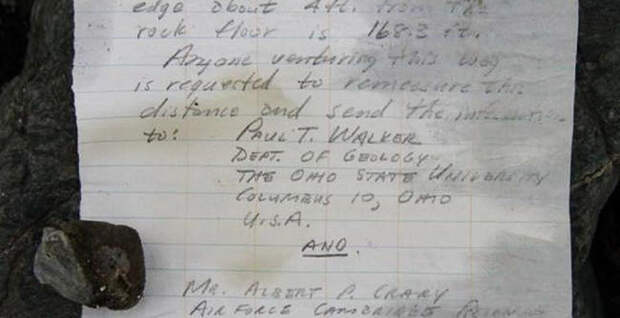 edge about 4 ft. from the
rock floor is 168.3 ft.
Anyone venturing this way
is requested to remeasure this
distance and send the information
to: PAUL T. WALKER
DEPT. OF GEOLOGY
THE OHIO STATE UNIVERSITY
COLUMBUS 10, OHIO
U.S.A.
AND
MR. ALBERT P. CRARY
AIR FORCE CAMBRIDGE